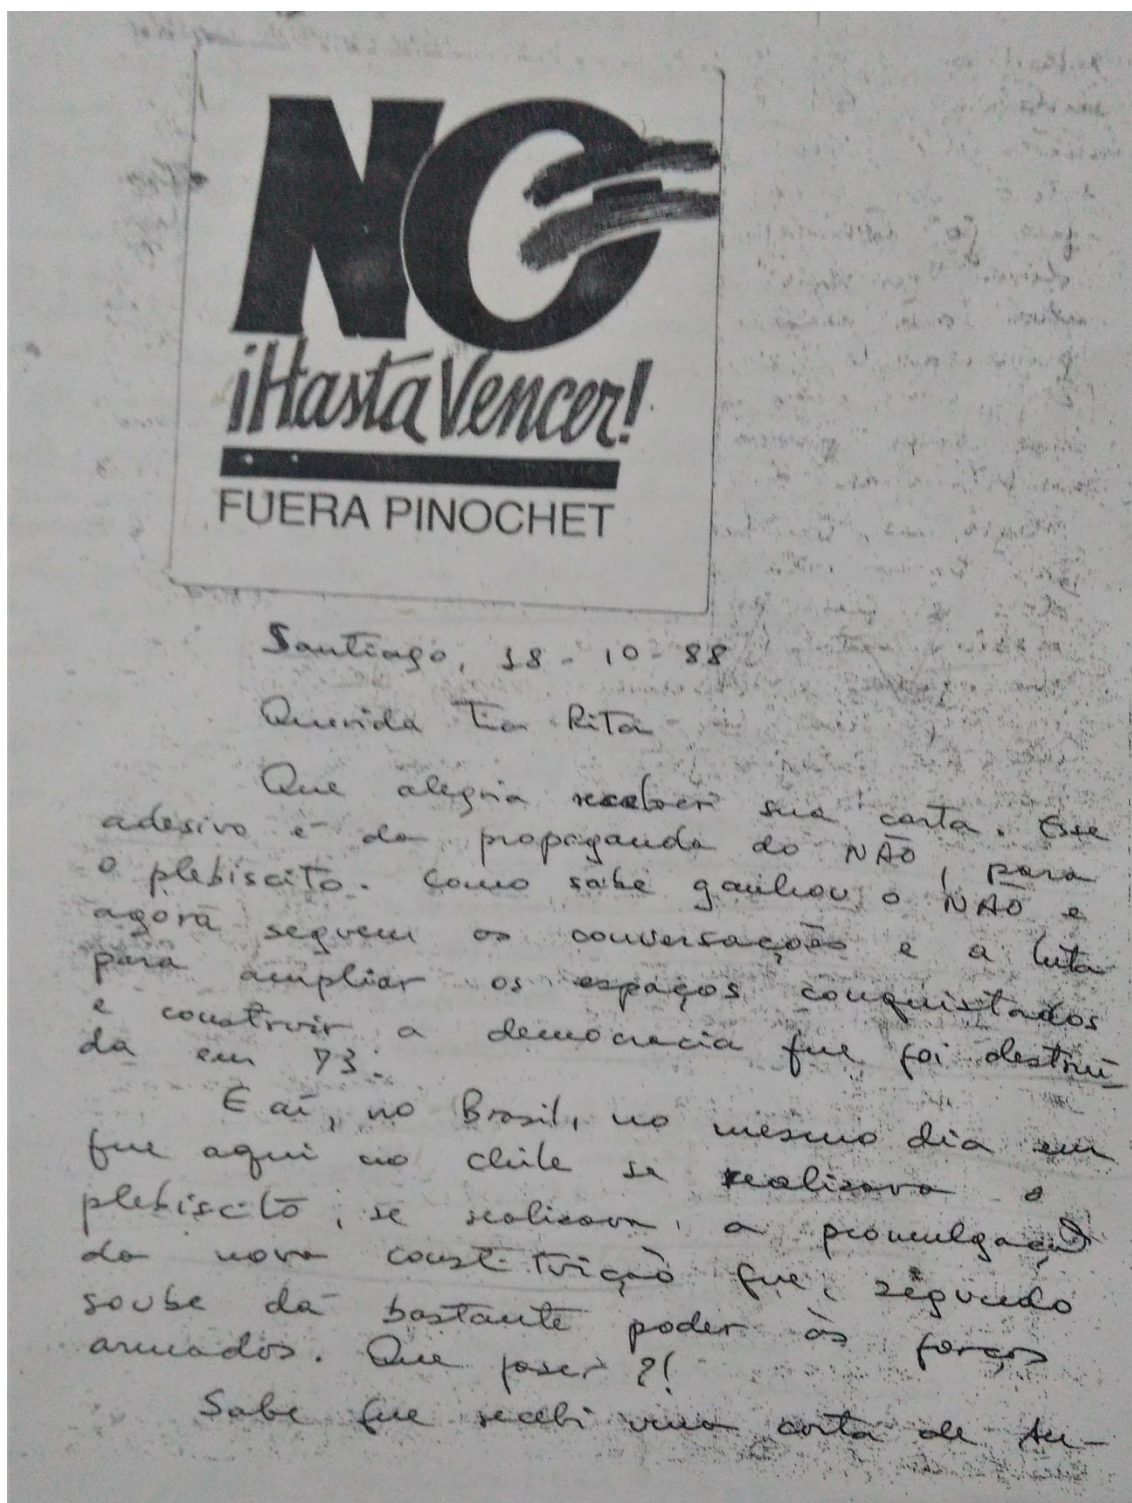 NO
¡Hasta Vencer!
FUERA PINOCHET
Santiago, 18-10-88
Querida Tia Rita
Que alegria receber sua carta. Esse
adesivo é da propaganda do NÃO, para
o plebiscito. Como sabe ganhou o NÃO e
agora seguem as conversações e a luta
para ampliar os espaços conquistados
e construir a democracia que foi destruí-
da em 73.
E aí, no Brasil, no mesmo dia em
que aqui no Chile se realizava o
plebiscito, se realizava, a promulgação
da nova constituição que, segundo
soube dá bastante poder às forças
armadas. Que fazer?!
Sabe que recebi uma carta de Au-